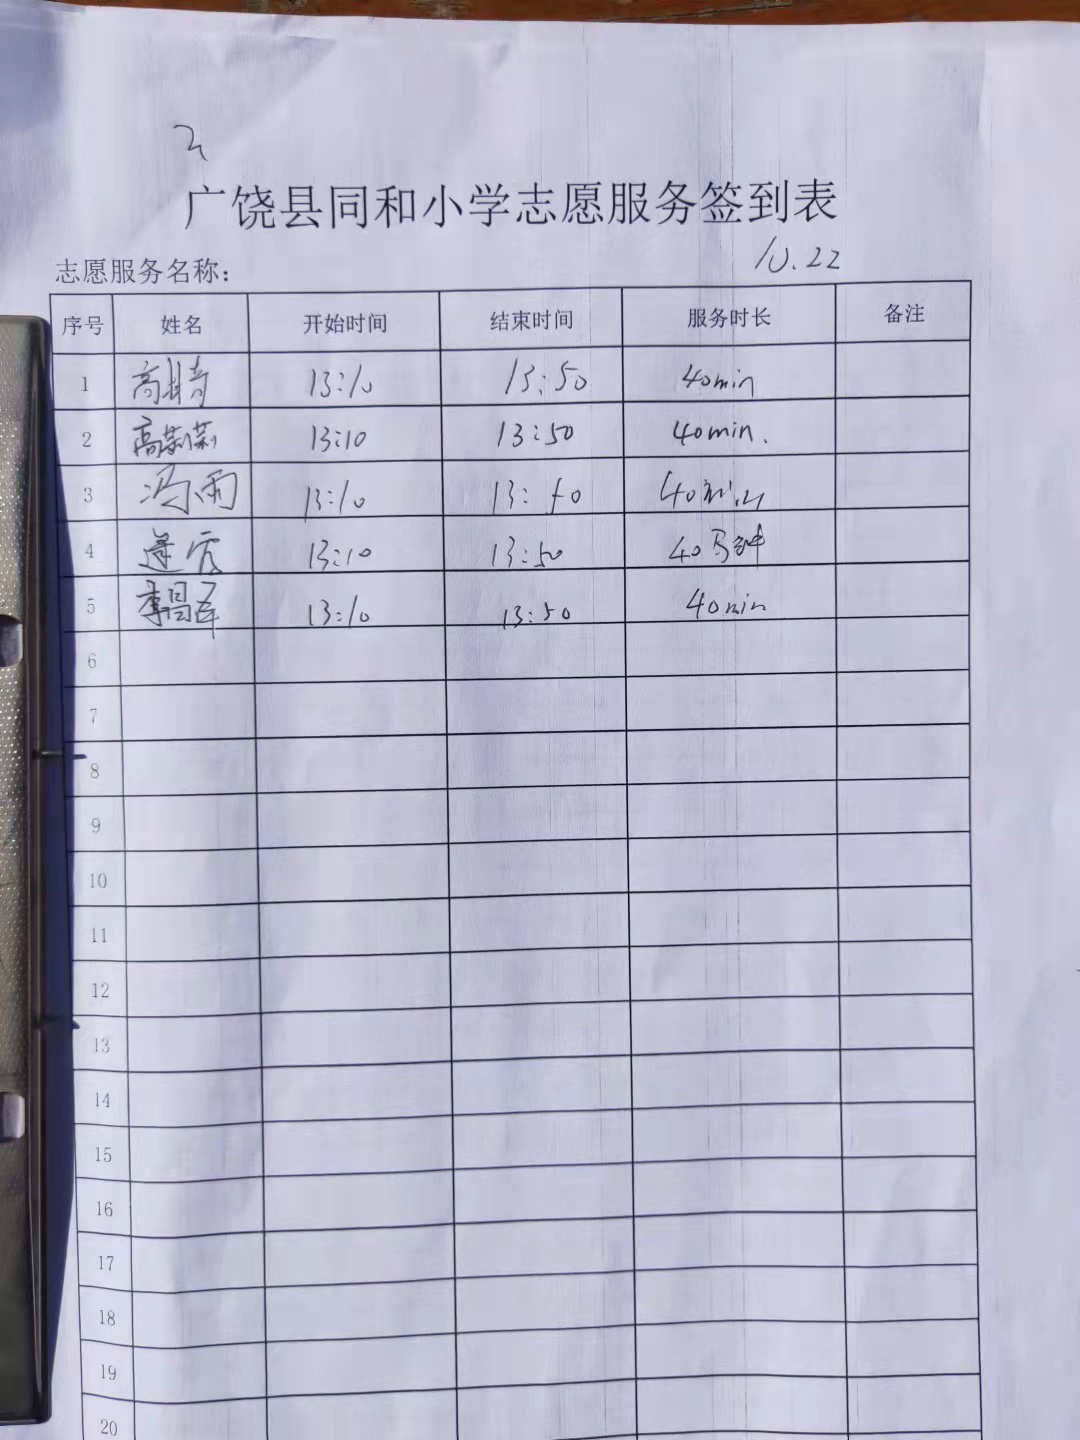 广饶县同和小学志愿服务签到表
10.22
志愿服务名称：
序号 姓名 开始时间 结束时间 服务时长 备注
1 高婧 13:10 13:50 40min
2 高莉莉 13:10 13:50 40min.
3 冯雨 13:10 13:50 40min
4 13:10 13:50 40分钟
5 李昌军 13:10 13:50 40min
6
7
8
9
10
11
12
13
14
15
16
17
18
19
20